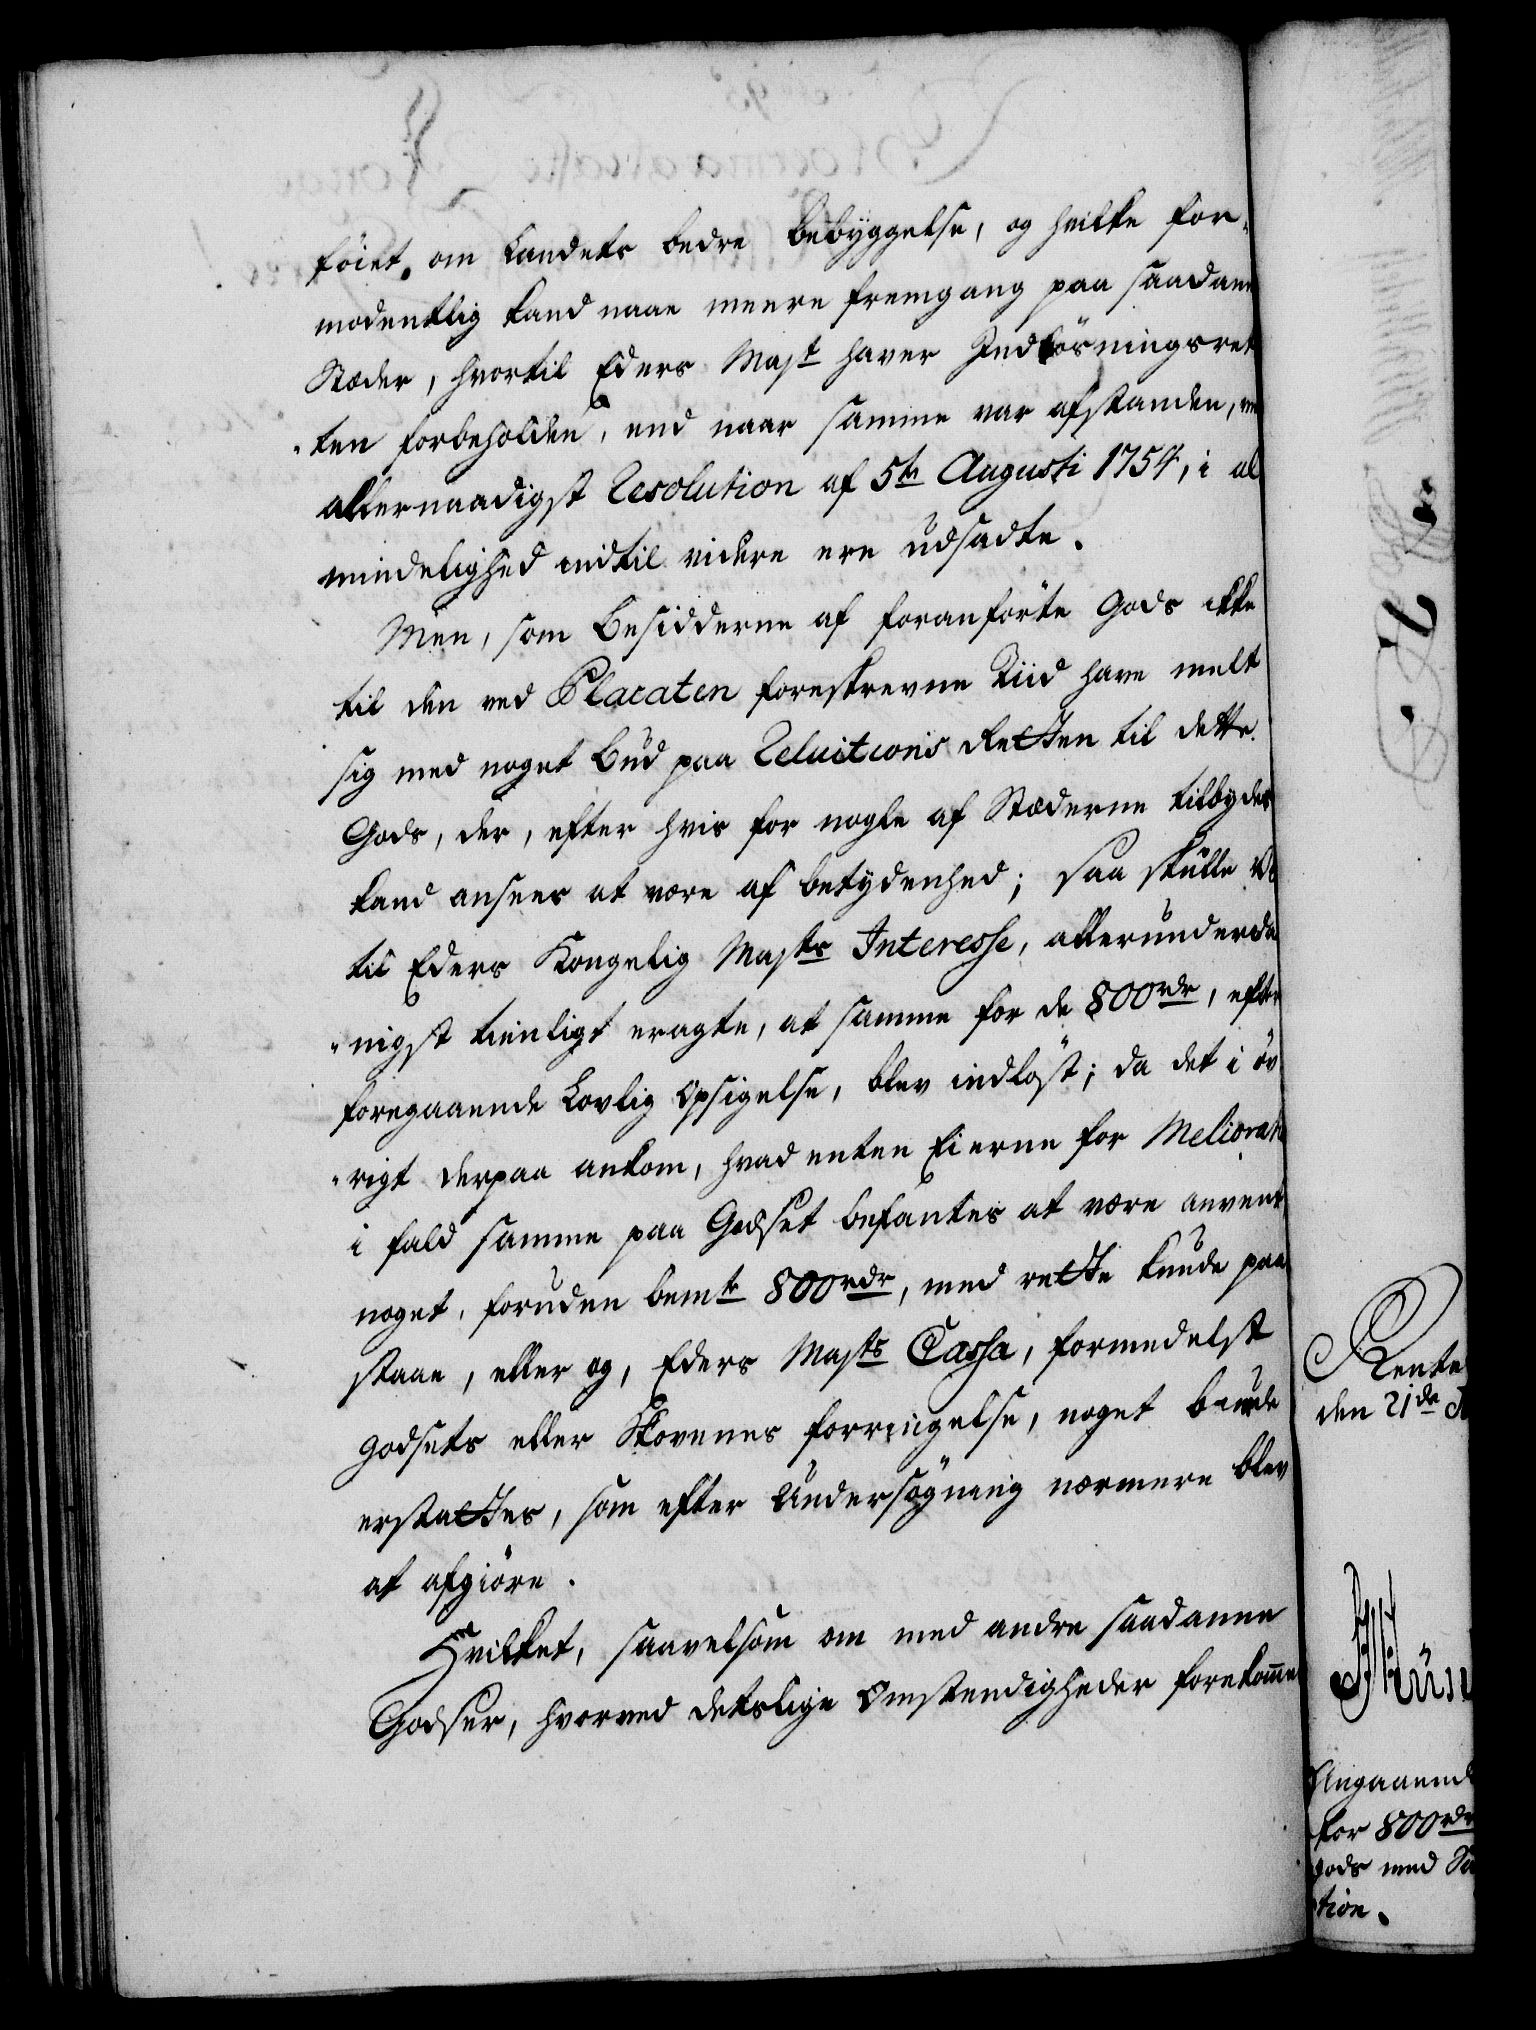 föiet om Landets bedre bebyggelse, og hvilke for-
modentlig kand naae meere fremgang paa saadane
Stæder, hvortil Eders Mayt haver Indlösningsret
-ten forbeholden, end naar samme var afstanden,
allernaadigst Resolution af 5te Augusti 1754, i al
mindelighed indtil videre ere udsadte.
Men, som Besidderne af foranförte Gods ikke
til den ved Placaten foreskrevne Tiid have melt
sig med noget Bud paa Reluitions Retten til dette
Gods, der, efter hvis for nogle af Stæderne tilbydes
kand ansees at være af betydenhed; saa skulle Vi
til Eders Kongelig Mayts Interesse, allerunderda
-nigst tienligt eragte, at samme for de 800rdr, efter
foregaaende Lovlig Opsigelse, blev indlöst; da det i öv
-rigt derpaa ankom, hvad enten Eierne for Meliorati
i fald samme paa Godset befantes at være anvent
noget, foruden bemte 800rdr, med rette kunde paa
staae, eller og, Eders Mayts Cassa, formedelst
Godsets eller Skovenes forringelse, noget burde
erstattes, som efter Undersögning nærmere blev
at afgiöre.
Hvilket, saavelsom om med andre saadanne
Godser, hvorved detslige Omstendigheder forekomme
Rente
den 21de
Angaaende
for 800rdr
Gods med
tion.